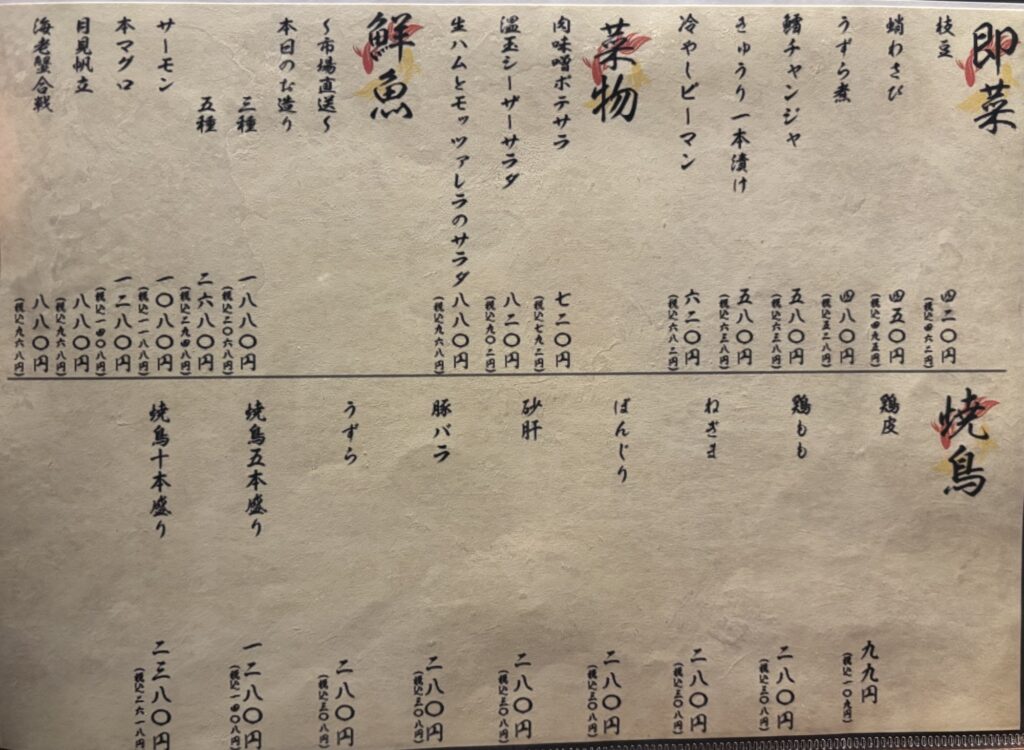 即菜
枝豆
四二〇円
(税込四六二円)
蛸わさび
四五〇円
(税込四九五円)
うずら煮
四八〇円
(税込五二八円)
鱈チャンジャ
五八〇円
(税込六三八円)
きゅうり一本漬け
五八〇円
(税込六三八円)
冷やしピーマン
六二〇円
(税込六八二円)
菜物
肉味噌ポテサラ
七二〇円
(税込七九二円)
温玉シーザーサラダ
八二〇円
(税込九〇二円)
生ハムとモッツァレラのサラダ
八八〇円
(税込九六八円)
鮮魚
〜市場直送〜
本日のお造り
三種
一八八〇円
(税込二〇六八円)
五種
二六八〇円
(税込二九四八円)
サーモン
一〇八〇円
(税込一一八八円)
本マグロ
一二八〇円
(税込一四〇八円)
月見帆立
八八〇円
(税込九六八円)
海老蟹合戦
八八〇円
(税込九六八円)
焼鳥
鶏皮
九九円
(税込一〇九円)
鶏もも
二八〇円
(税込三〇八円)
ねぎま
二八〇円
(税込三〇八円)
ぼんじり
二八〇円
(税込三〇八円)
砂肝
二八〇円
(税込三〇八円)
豚バラ
二八〇円
(税込三〇八円)
うずら
二八〇円
(税込三〇八円)
焼鳥五本盛り
一二八〇円
(税込一四〇八円)
焼鳥十本盛り
二三八〇円
(税込二六一八円)